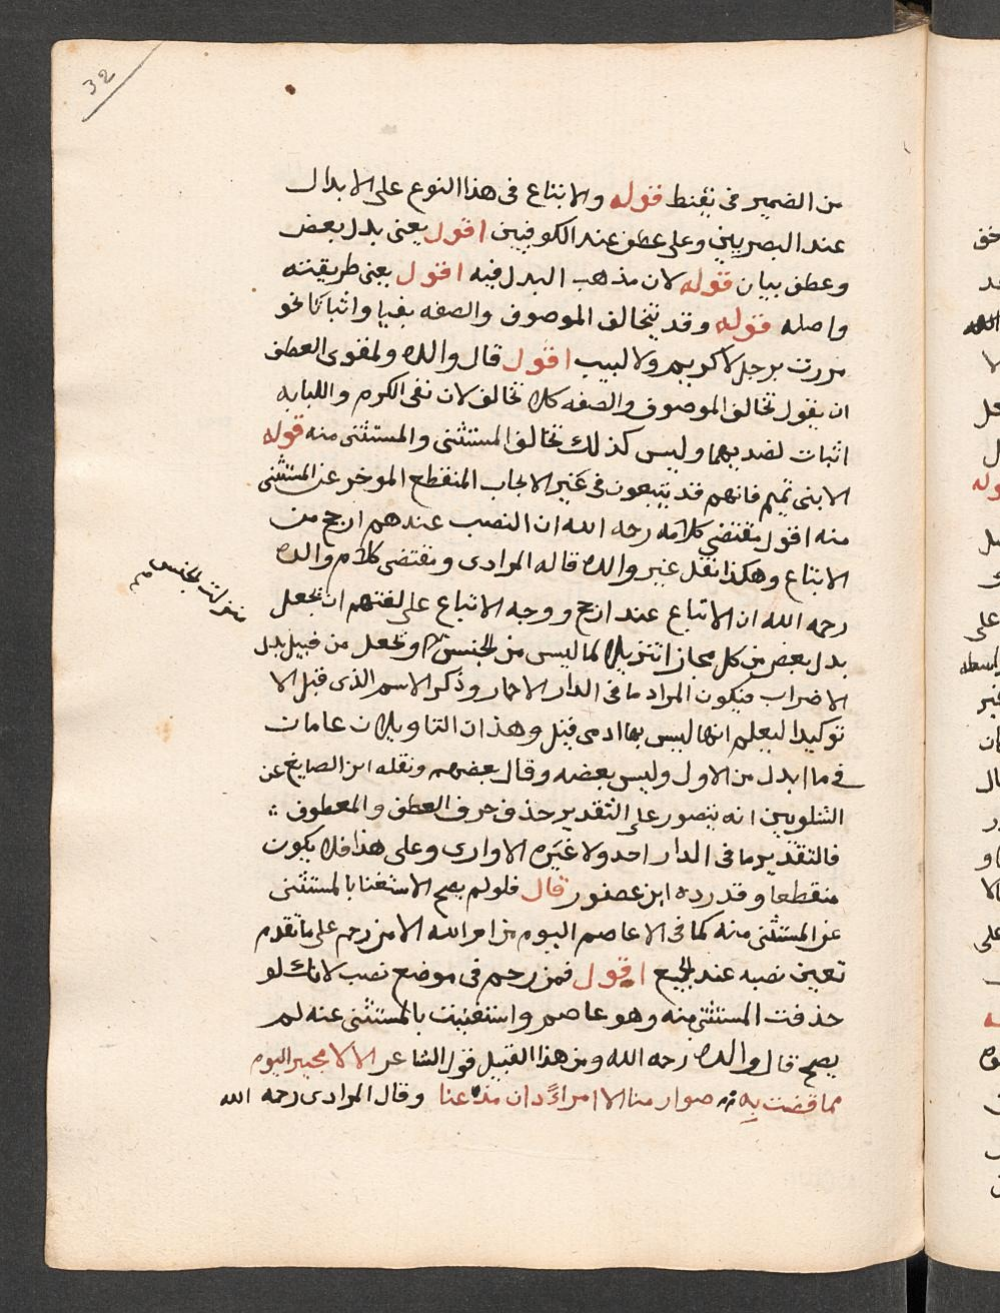 32
من الضمير فى يقنط قوله والاتباع فى هذا النوع على الابدال
عند البصريين وعلى عطف عند الكوفيين اقول يعنى بدل بعض
وعطف بيان قوله لان مذهب البدل فيه اقول يعنى طريقته
واصله قوله وقد تتخالف الموصوف والصفه نفيا واثباتا نحو
مررت برجل لا كريم ولا لبيب اقول قال والده ولمقوى العطف
ان يقول تخالف الموصوف والصفه كلا تخالف لان نفى الكرم واللبابه
اثبات لضديهما وليس كذلك تخالف المستثنى والمستثنى منه قوله
الا بنى تميم فانهم قد يتبعون فى غير الايجاب المنقطع الموخر عن المستثنى
منه اقول مقتضى كلامه رحه الله ان النصب عندهم ارجح من
الاتباع وهكذا نقل غير والده قاله المرادى ومقتضى كلام والده
رحمه الله ان الاتباع عند ارجح ووجه الاتباع على لغتهم ان تجعل
بدل بعض من كل مجازا تنزيلا لما ليس من الجنس وتجعل من قبيل بدل
منزلة الجنس
الاضراب فيكون المراد ما فى الدار الاحمار وذكر الاسم الذى قبل الا
توكيدا ليعلم انها ليس بها ادمى قيل وهذان التاويلان عامان
فى ما ابدل من الاول وليس بعضه وقال بعضهم ونقله ابن الصايغ عن
الشلوبين انه يتصور على التقدير حذف حرف العطف والمعطوف
فالتقدير ما فى الدار احد ولا غيره الا وارى وعلى هذا فلا يكون
منقطعا وقد رده ابن عصفور قال فلو لم يصح الاستغنا بالمستثنى
عن المستثنى منه كما فى لا عاصم اليوم من امر الله الا من رحم على ما تقدم
تعين نصبه عند الجميع اقول فمن رحم فى موضع نصب لانك لو
حذفت المستثنى منه وهو عاصم واستغنيت بالمستثنى عنه لم
يصح قال والده رحه الله ومن هذا القبيل قول الشاعر الا لا مجير اليوم
مما قضت به صوارمنا الا امراً دان مذعنا وقال المرادى رحمه الله